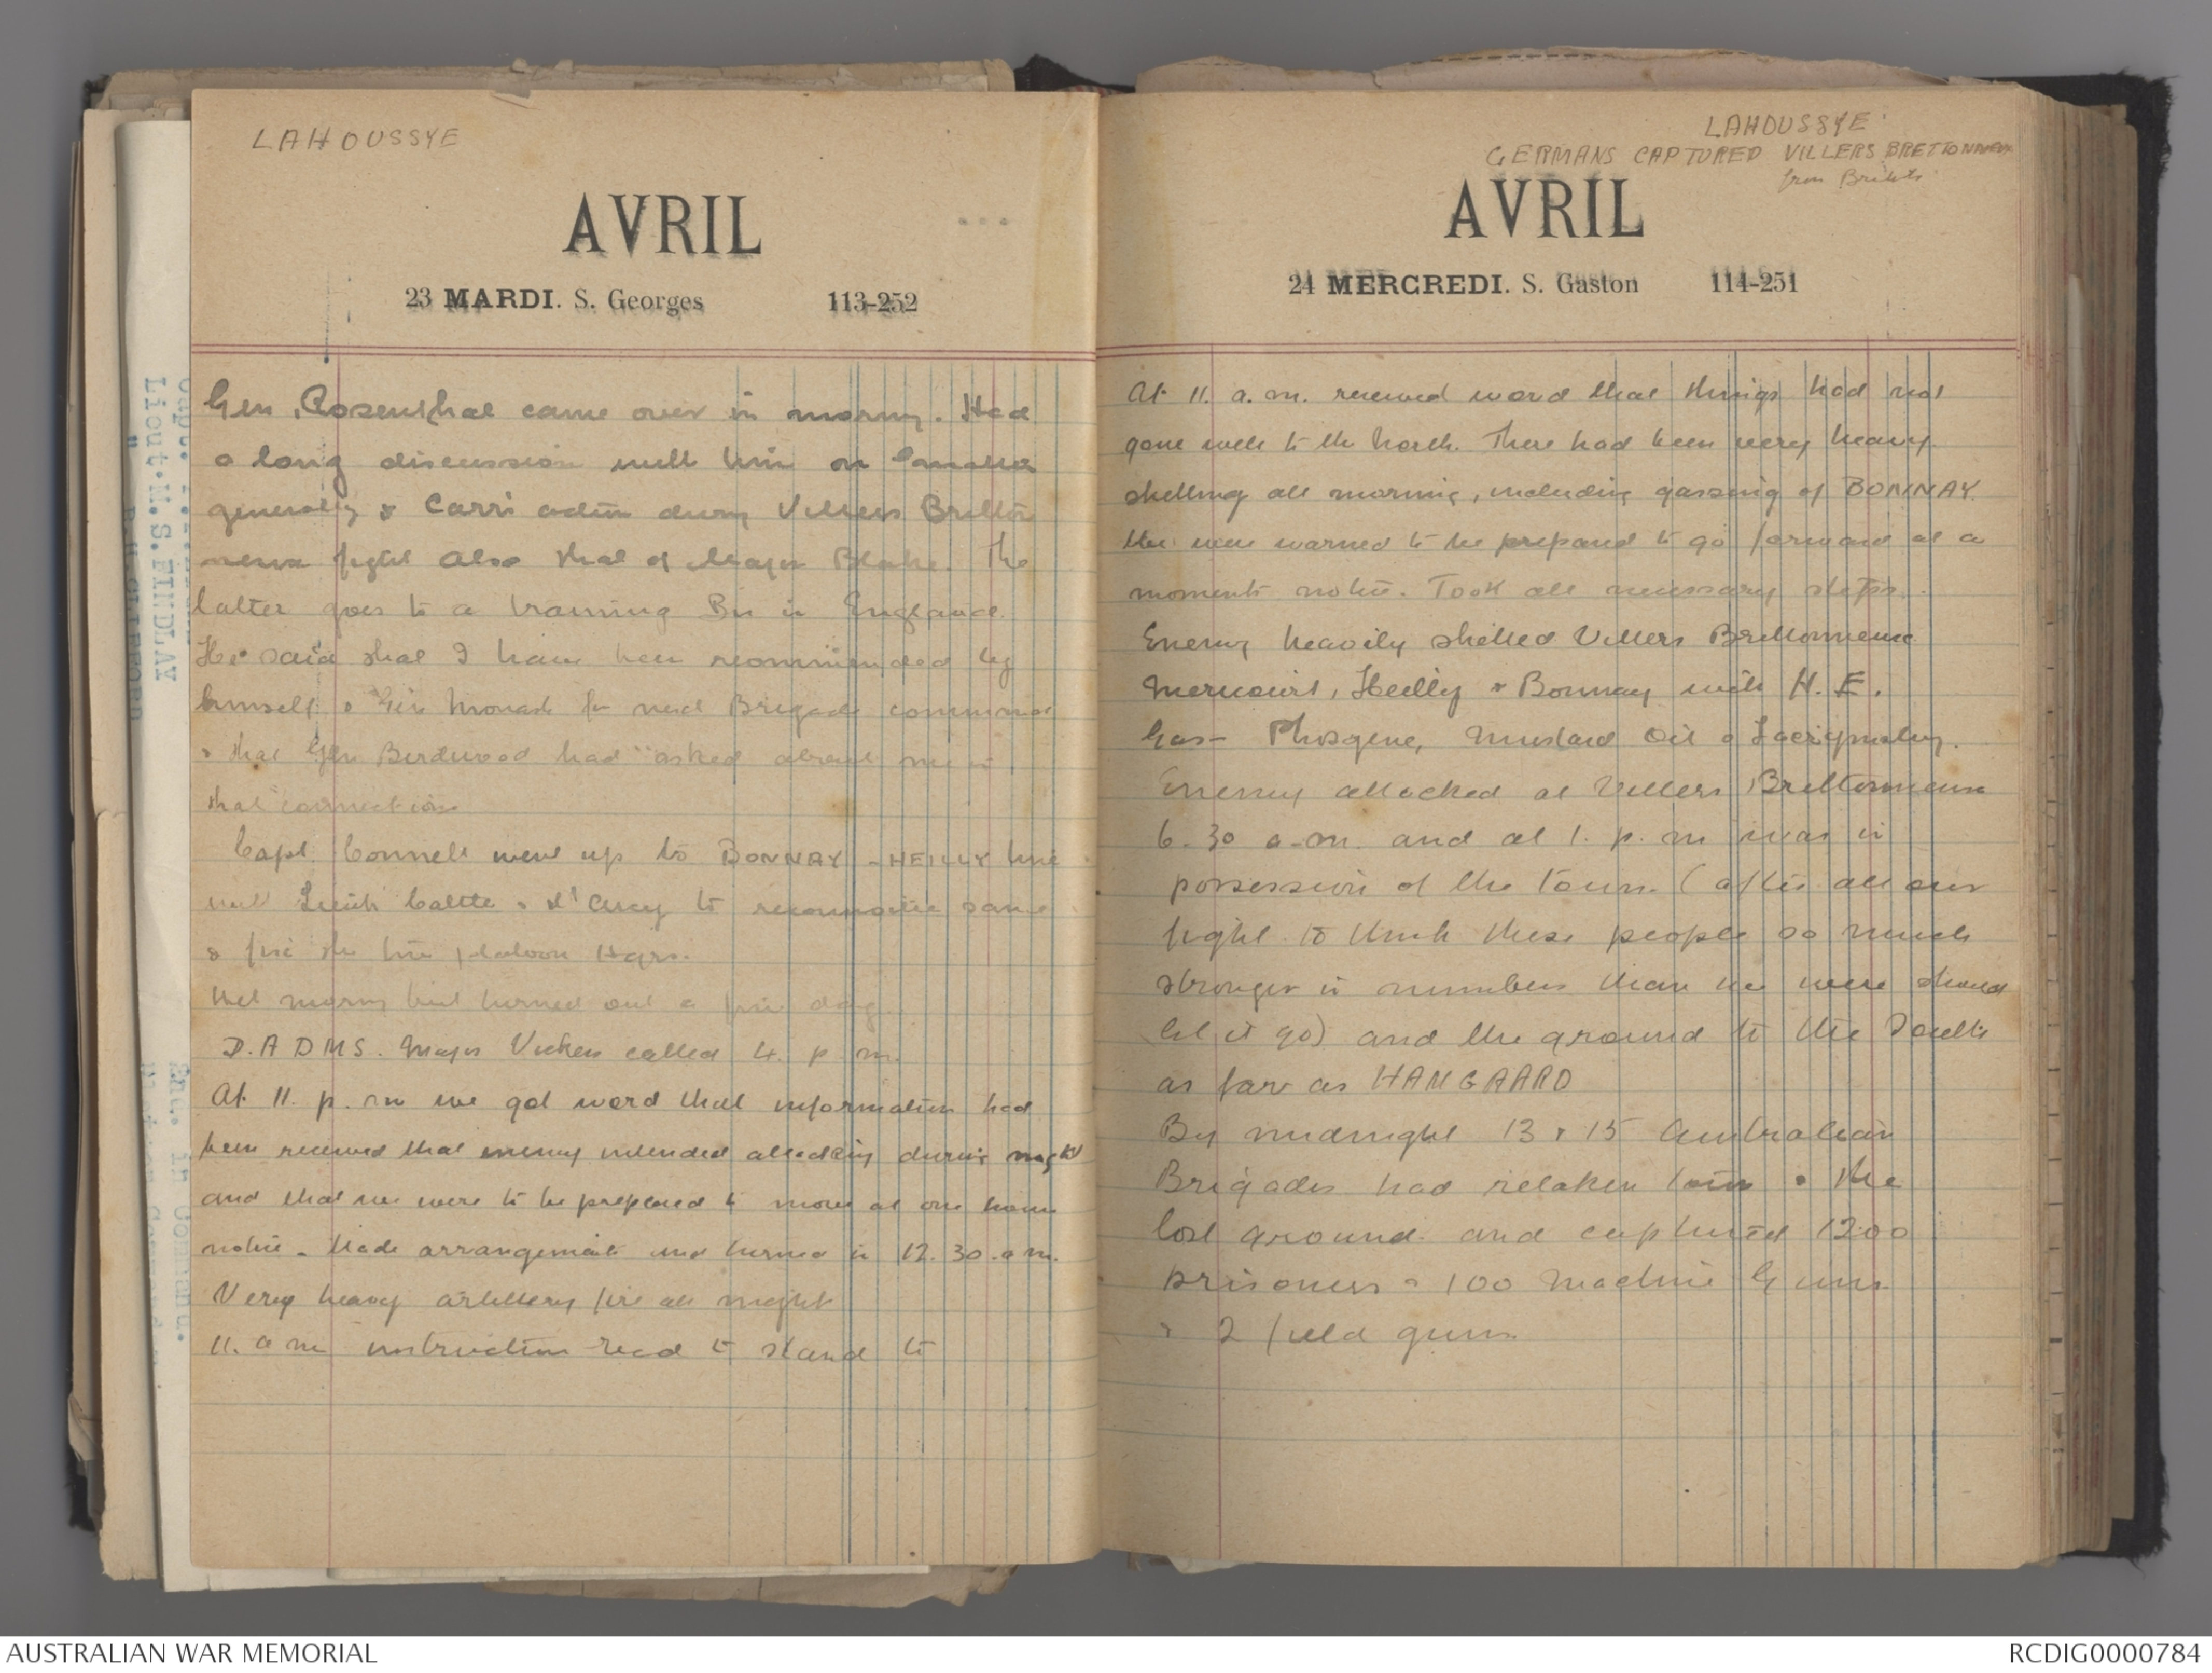 LAHOUSSYE
AVRIL
23 MARDI. S. Georges 113-252
Gen. Rosenthal came over in morng. Had
a long discussion with him on
generally & Carrs action during Villers Bretton
neux fight also that of Major Blake. The
latter goes to a training Bn in England.
He said that I have been recommended by
himself & Gen Monash for next Brigade command
& that Gen Birdwood had asked about me in
that connection
Capt. Connell went up to BONNAY - HEILLY line
with & D'Arcy to reconnoitre same
& fix the line platoon Hqrs.
Wet morng but turned out a fine day.
D.A.D.M.S. Major Vickers called 4. p.m.
At 11. p.m we got word that information had
been received that enemy intended attacking during night
and that we were to be prepared to move at one hour
notice. Made arrangements and turned in 12.30. a m.
Very heavy artillery fire all night
11. a m instruction recd to stand to
LAHOUSSYE
GERMANS CAPTURED VILLERS BRETTONNEUX
from British
AVRIL
24 MERCREDI. S. Gaston 114-251
At 11. a.m. received word that things had not
gone well to the North. There had been very heavy
shelling all morning, including gassing of BONNAY.
We were warned to be prepared to go forward at a
moments notice. Took all necessary steps.
Enemy heavily shelled Villers Brettonneux
Mericourt, Heilly & Bonnay with H.E.
Gas - Phosgene, Mustard Oil & Lacrymatory.
Enemy attacked at Villers Brettonneux
6.30 a.m. and at 1. p.m was in
possession of the town (after all our
fight to think these people so much
stronger in numbers than we were should
let it go) and the ground to the South
as far as HANGAARD
By midnight 13 & 15 Australian
Brigades had retaken town & the
lost ground and captured 1200
prisoners & 100 Machine Guns
& 2 field guns
AUSTRALIAN WAR MEMORIAL
RCDIG0000784